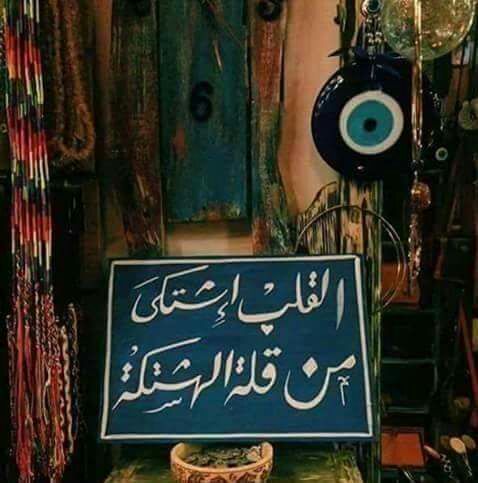 القلب إشتكى
من قلة الهشتكة
6